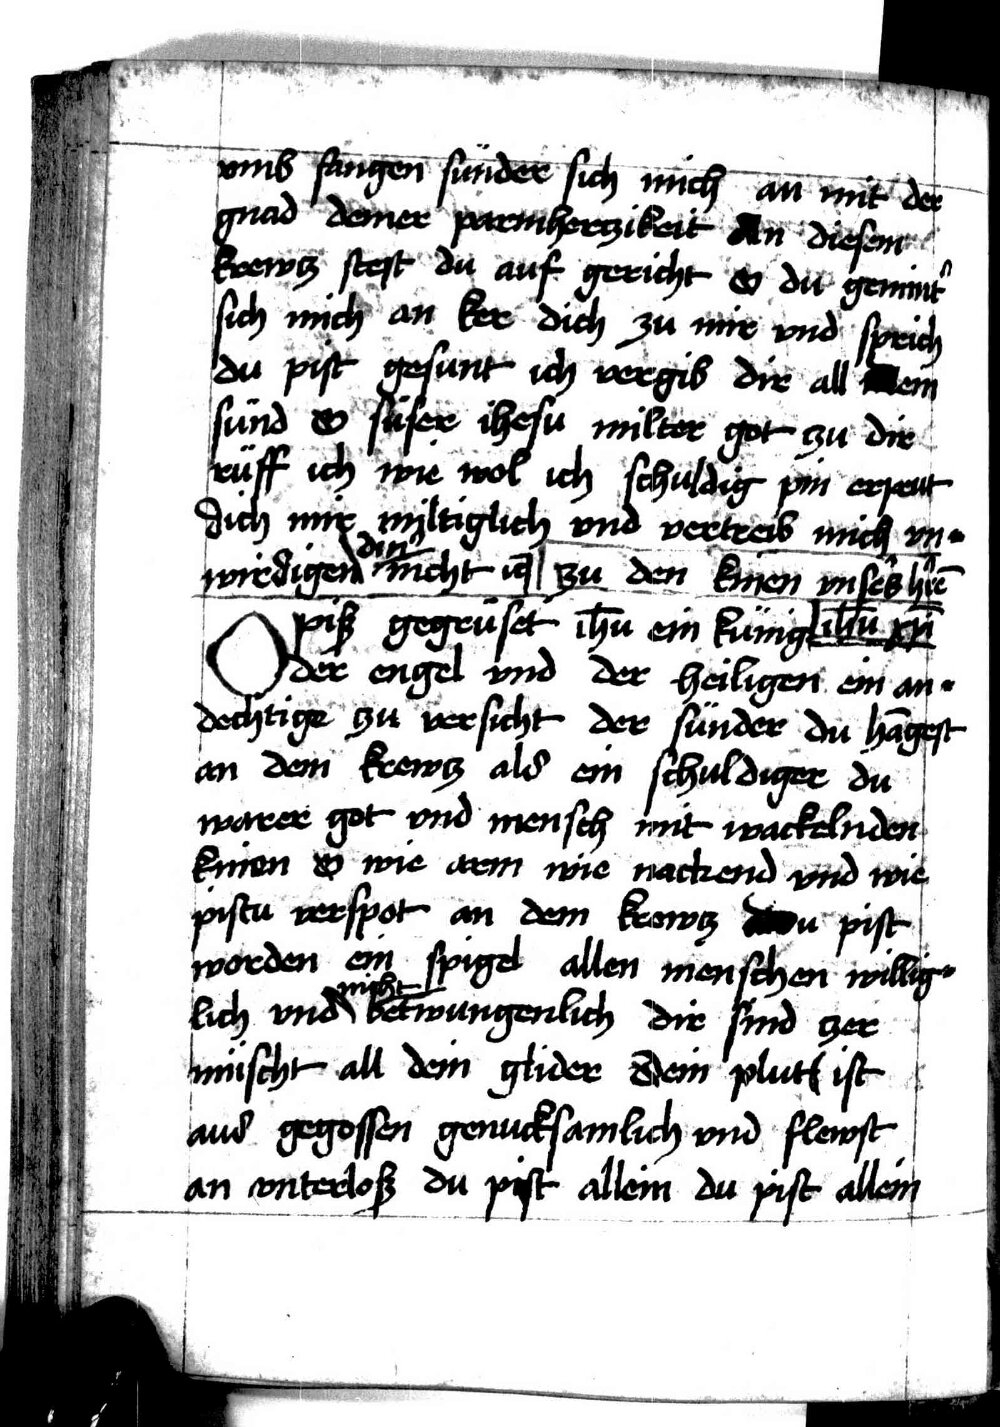 vmb fangen sünder sich mich an mit der
gnad deiner parmherczikeit An diesem
krewcz stest du auf gericht O du gemint͛
sich mich an ker dich zu mir vnd sprich
du pist gesunt ich vergib dir all mein
sünd O süser ihesu milter got zu dir
rüff ich wie wol ich schuldig pin erpeut
dich mir miltiglich vnd vertreib mich vn-
wirdigen din͛ nicht ic̄ zu den knien vnsers h̄re
O piß gegrüset ih̄u ein künig ih̄u xp̄i
der engel vnd der heiligen ein an-
dechtige zu versicht der sünder du hāgest
an dem krewcz als ein schuldiger du
warer got vnd mensch mit wackelnden
knien O wie arm wie nackend vnd wie
pistu verspot an dem krewcz du pist
worden ein spigel allen menschen willig-
lich vnd nicht betwungenlich dir sind zer
müscht all dein glider dein plut ist
aus gegossen genucksamlich vnd flewst
an vnterloß du pist allein du pist allein